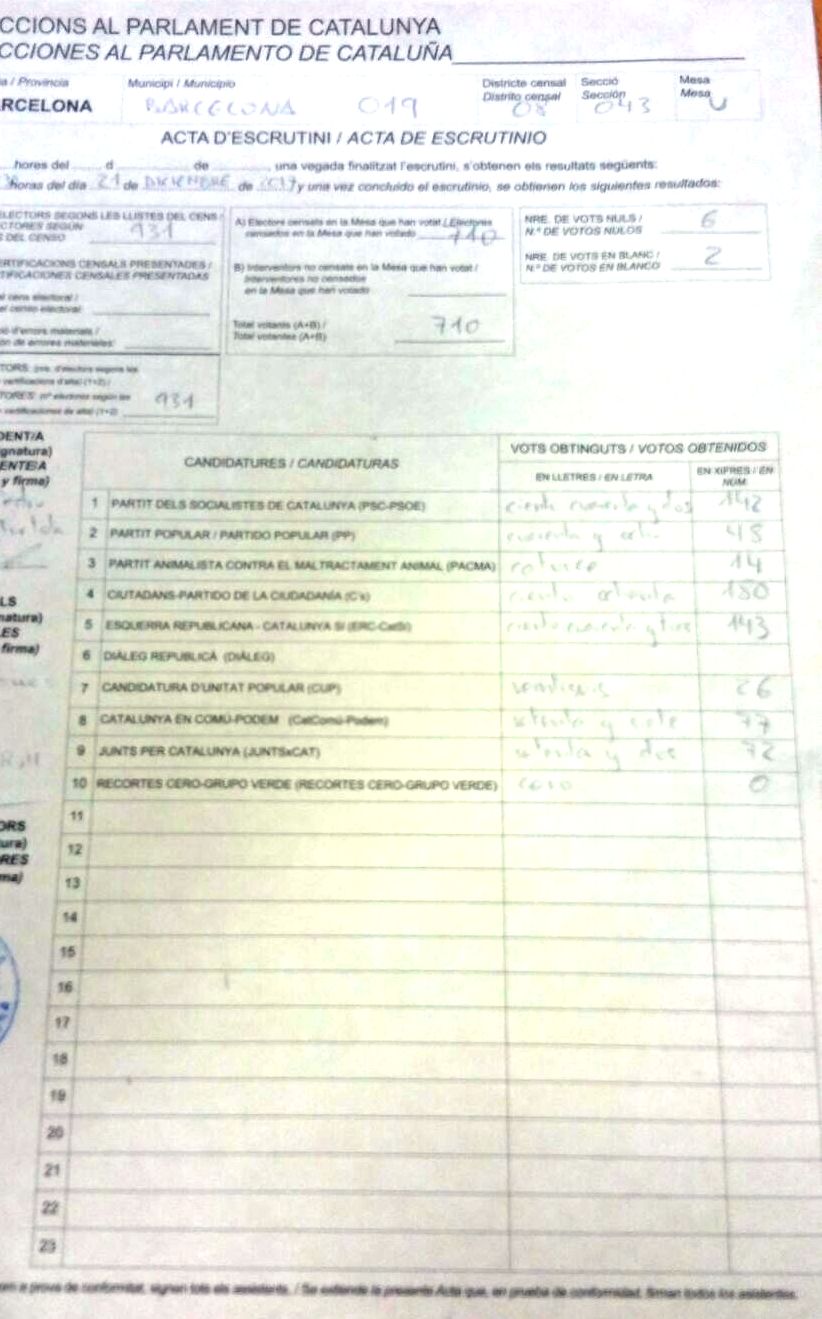 CCIONS AL PARLAMENT DE CATALUNYA
CCIONES AL PARLAMENTO DE CATALUÑA
a / Provincia
Municipi / Municipio
Districte censal
Distrito censal
Secció
Sección
Mesa
Mesa
RCELONA BARCELONA 019 08 043 U
ACTA D'ESCRUTINI / ACTA DE ESCRUTINIO
hores del d de , una vegada finalitzat l'escrutini, s'obtenen els resultats següents:
horas del día 21 de DICIEMBRE de 2017 y una vez concluido el escrutinio, se obtienen los siguientes resultados:
LECTORS SEGONS LES LLISTES DEL CENS /
CTORES SEGÚN
S DEL CENSO 931
ERTIFICACIONS CENSALS PRESENTADES /
TIFICACIONES CENSALES PRESENTADAS
l cens electoral /
el censo electoral:
ó d'errors materials /
ón de errores materiales:
TORS: (nre. d'electors segons les
certificacions d'alta) (1+2) /
TORES: nº electores según las
certificaciones de alta) (1+2) 931
A) Electors censats en la Mesa que han votat / Electores
censados en la Mesa que han votado 710
B) Interventors no censats en la Mesa que han votat /
Interventores no censados
en la Mesa que han votado
Total votants (A+B) /
Total votantes (A+B) 710
NRE. DE VOTS NULS /
N.º DE VOTOS NULOS 6
NRE. DE VOTS EN BLANC /
N.º DE VOTOS EN BLANCO 2
DENT/A
gnatura)
ENTE/A
y firma)
LS
natura)
LES
firma)
ORS
ura)
RES
ma)
CANDIDATURES / CANDIDATURAS
VOTS OBTINGUTS / VOTOS OBTENIDOS
EN LLETRES / EN LETRA
EN XIFRES / EN
NÚM.
1 PARTIT DELS SOCIALISTES DE CATALUNYA (PSC-PSOE) ciento cuarenta y dos 142
2 PARTIT POPULAR / PARTIDO POPULAR (PP) cuarenta y ocho 48
3 PARTIT ANIMALISTA CONTRA EL MALTRACTAMENT ANIMAL (PACMA) catorce 14
4 CIUTADANS-PARTIDO DE LA CIUDADANÍA (C's) ciento ochenta 180
5 ESQUERRA REPUBLICANA - CATALUNYA SÍ (ERC-CatSí) ciento cuarenta y tres 143
6 DIÀLEG REPUBLICÀ (DIÀLEG)
7 CANDIDATURA D'UNITAT POPULAR (CUP) veintiseis 26
8 CATALUNYA EN COMÚ-PODEM (CatComú-Podem) setenta y siete 77
9 JUNTS PER CATALUNYA (JUNTSxCAT) setenta y dos 72
10 RECORTES CERO-GRUPO VERDE (RECORTES CERO-GRUPO VERDE) cero 0
11
12
13
14
15
16
17
18
19
20
21
22
23
a prova de conformitat, signen tots els assistents. / Se extiende la presente Acta que, en prueba de conformidad, firman todos los asistentes.